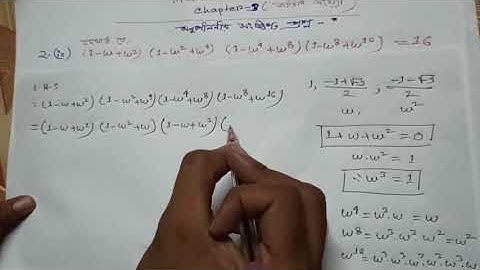 Chapter-3
2. (ii) (1-ω+ω²) (1-ω²+ω⁴) (1-ω⁴+ω⁸) (1-ω⁸+ω¹⁶) = 16
L.H.S
= (1-ω+ω²) (1-ω²+ω⁴) (1-ω⁴+ω⁸) (1-ω⁸+ω¹⁶)
= (1-ω+ω²) (1-ω²+ω) (1-ω+ω²) (
1, (-1+√-3)/2, (-1-√-3)/2
ω, ω²
1+ω+ω²=0
ω.ω²=1
∴ω³=1
ω⁴=ω³.ω =ω
ω⁸=ω³.ω³.ω²=ω²
ω¹⁶=ω³.ω³.ω³.ω³.ω³.ω